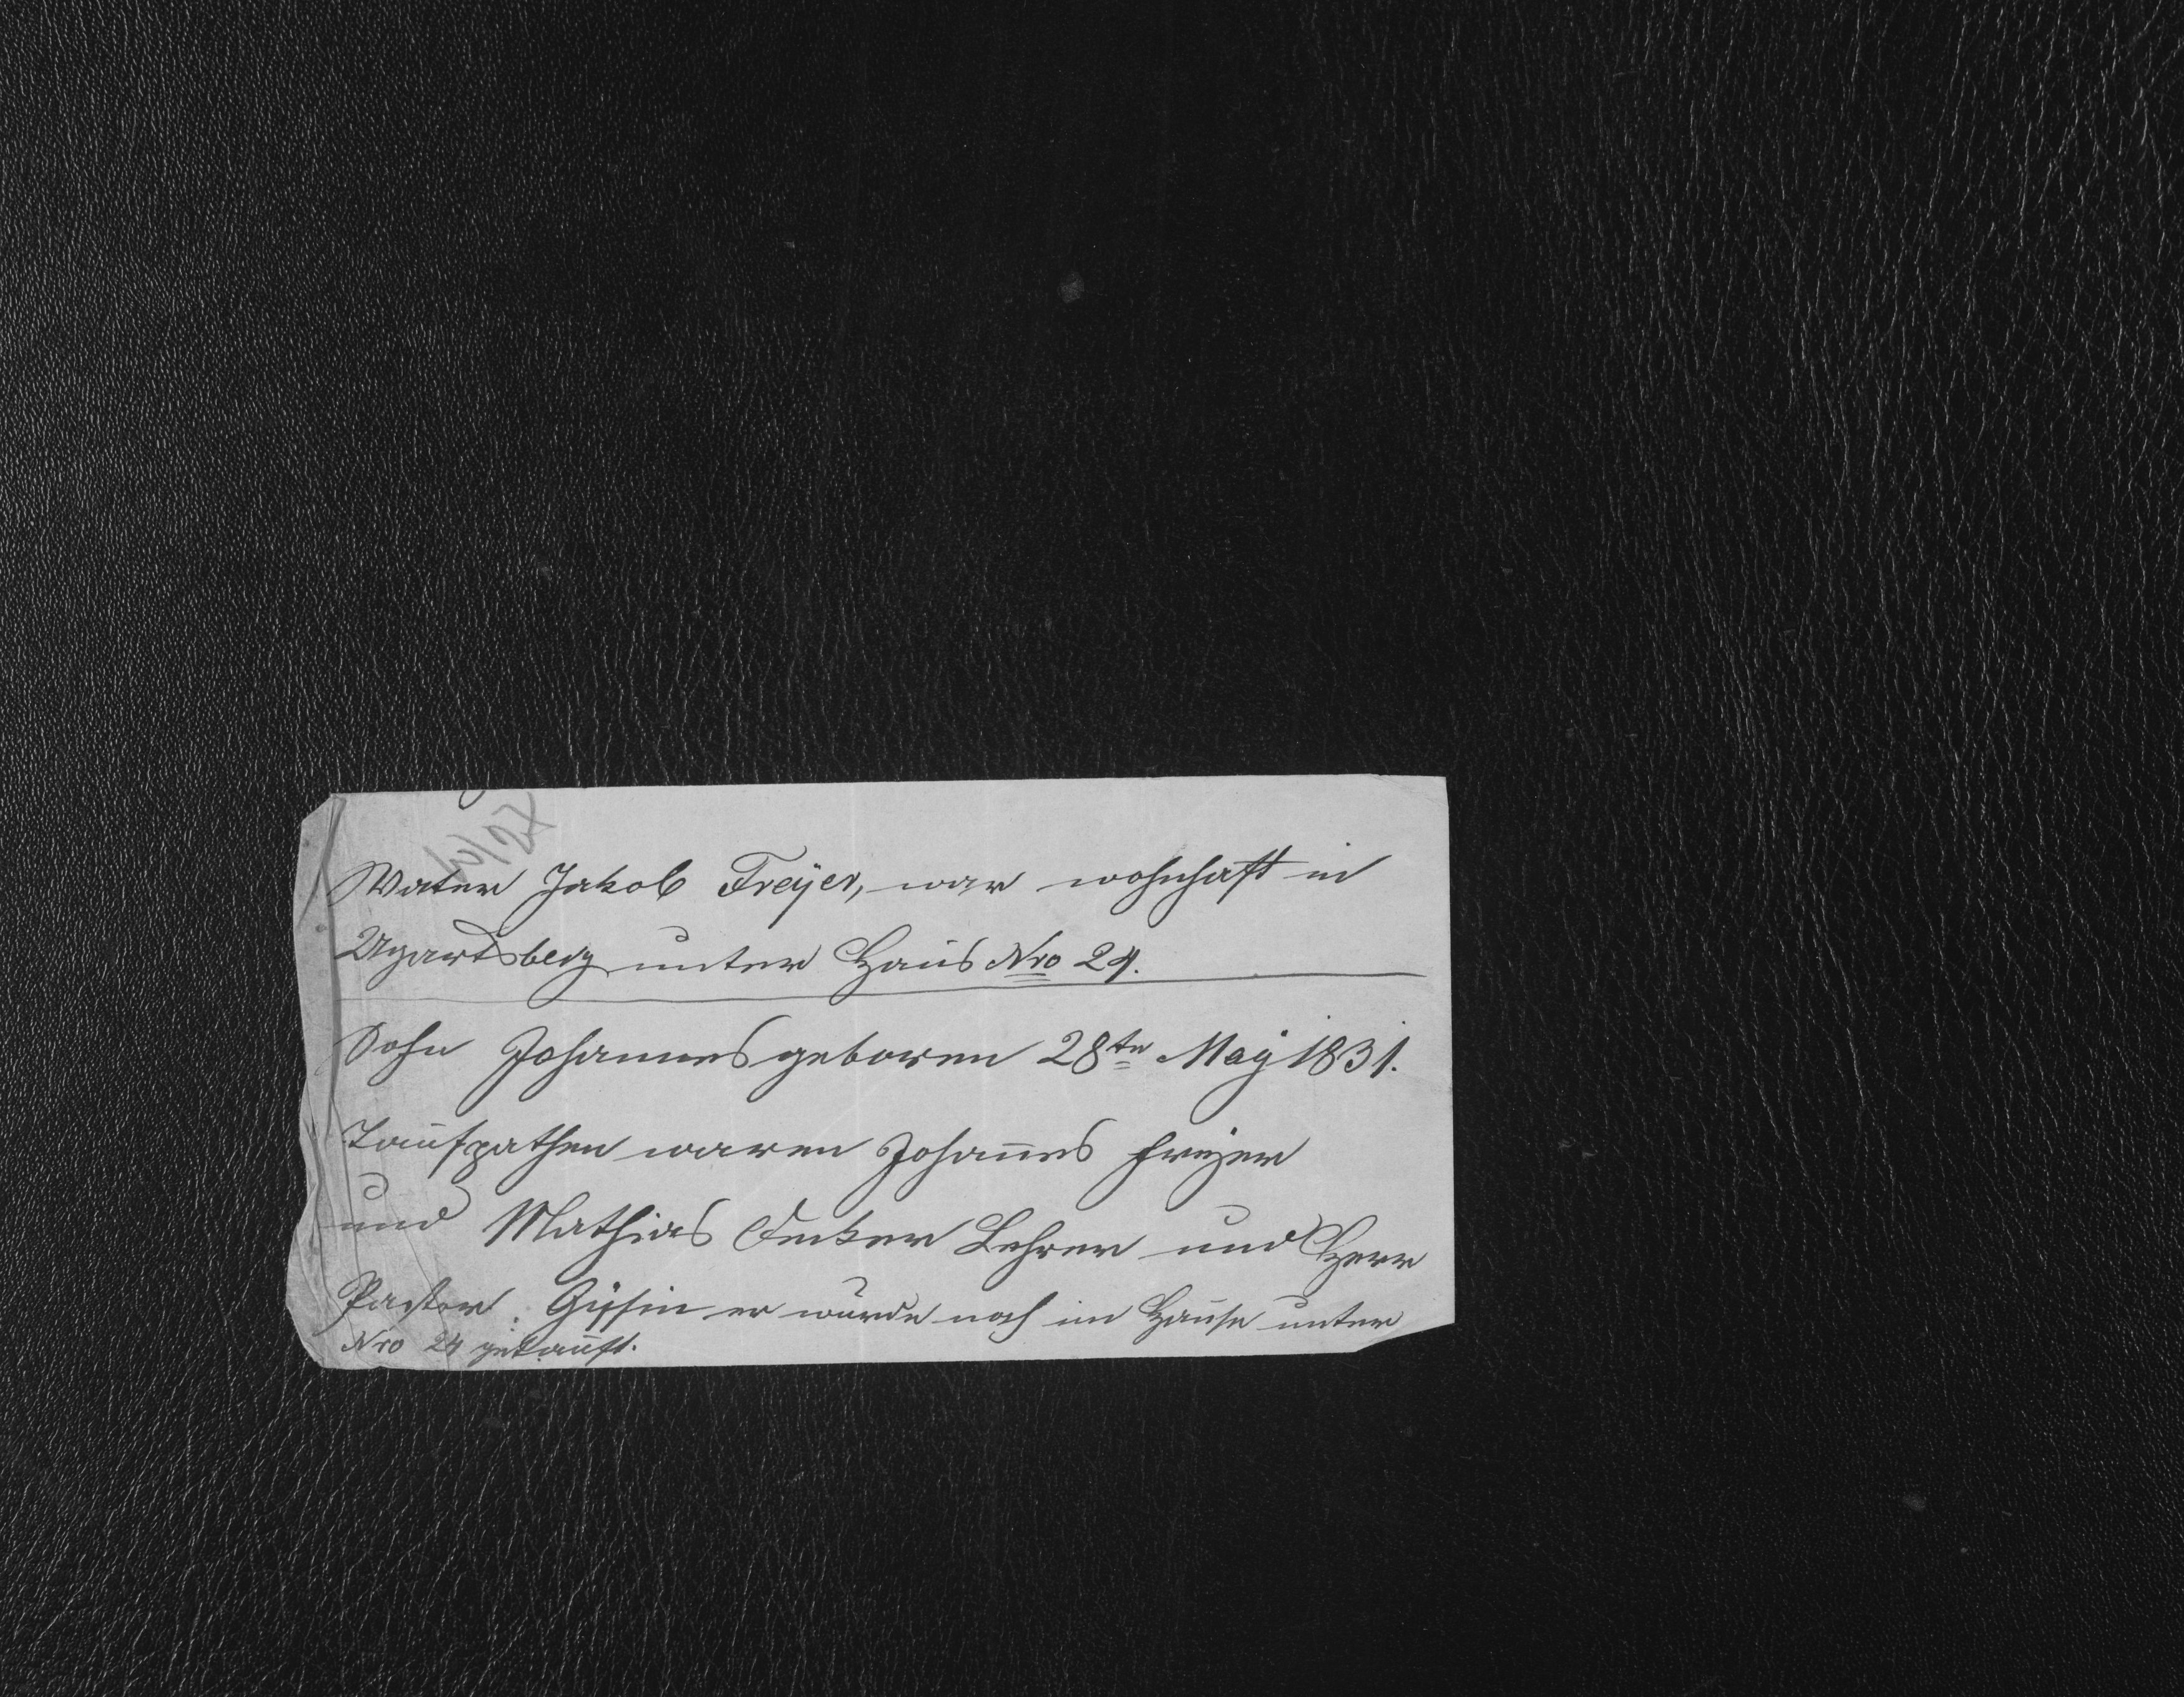 Vater Jakob Freÿer, war wohnhaft in
Ugartsberg unter Haus Nro 24.
Sohn Johannes geboren 28te Maÿ 1831.
Taufpathen waren Johan̄es Freÿer
und Mathias Decker Lehrer und Herr
Pastor. er wurde noch im Hause unter
Nro 24 getauft.